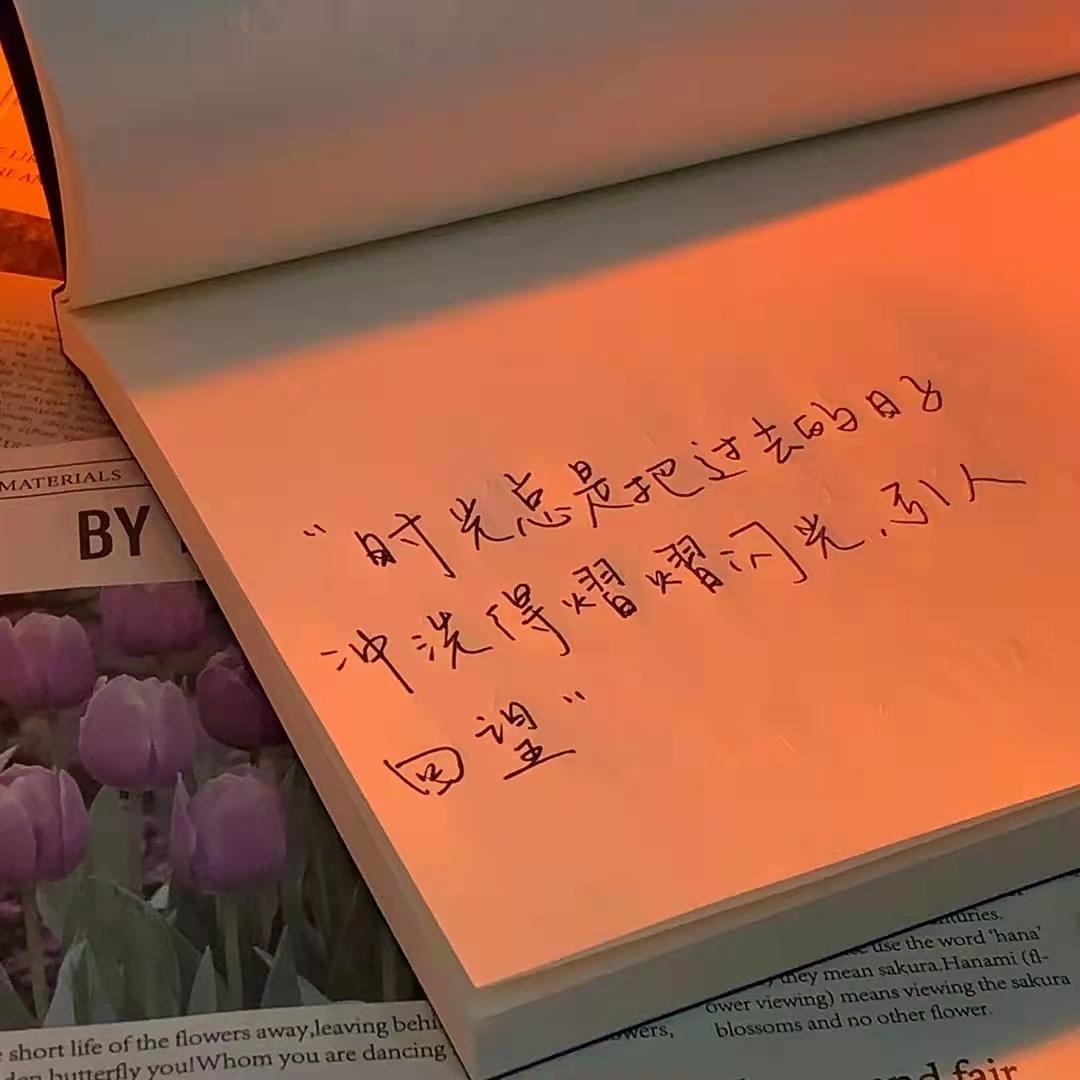 MATERIALS
BY
“时光总是把过去的日子
冲洗得熠熠闪光，引人
回望”
short life of the flowers away,leaving behi
butterfly you!Whom you are dancing
nturies.
use the word ‘hana’
they mean sakura.Hanami (fl-
ower viewing) means viewing the sakura
blossoms and no other flower.
owers,
nd fair